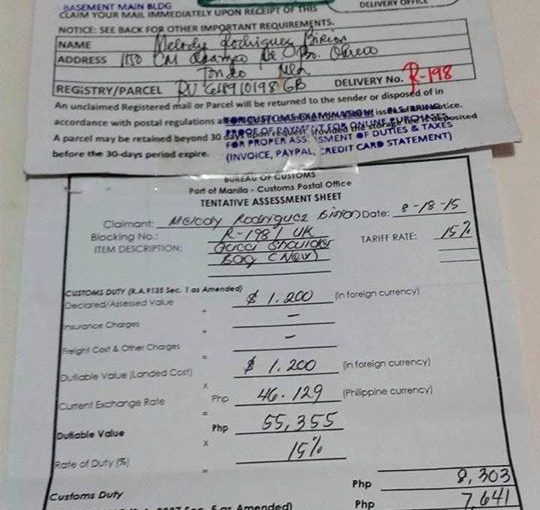 BASEMENT MAIN BLDG
DELIVERY OFFICE
CLAIM YOUR MAIL IMMEDIATELY UPON RECEIPT OF THIS
NOTICE: SEE BACK FOR OTHER IMPORTANT REQUIREMENTS.
NAME Melody Rodriguez
ADDRESS 1150 CM
Tondo Mla
REGISTRY/PARCEL RU 648910198 GB DELIVERY No. R-198
An unclaimed Registered mail or Parcel will be returned to the sender or disposed of in
accordance with postal regulations FOR CUSTOMS EXAMINATION: PLS. BRING notice.
A parcel may be retained beyond 30 PROOF OF PAYMENT FOR ONLINE PURCHASES
before the 30-days period expire. FOR PROPER ASSESSMENT OF DUTIES & TAXES
(INVOICE, PAYPAL, CREDIT CARD STATEMENT)
BUREAU OF CUSTOMS
Port of Manila - Customs Postal Office
TENTATIVE ASSESSMENT SHEET
Claimant: Melody Rodriguez Date: 8-18-15
Blocking No.: R-198 / UK TARIFF RATE: 15%
ITEM DESCRIPTION: Gucci Shoulder
Bag (New)
CUSTOMS DUTY (R.A.9135 Sec. 1 as Amended)
Declared/Assessed Value $ 1,200 (in foreign currency)
+
Insurance Charges -
+
Freight Cost & Other Charges -
=
Dutiable Value (Landed Cost) $ 1,200 (in foreign currency)
x
Current Exchange Rate Php 46.129 (Philippine currency)
=
Dutiable Value Php 55,355
x
Rate of Duty (%) 15%
=
Customs Duty Php 8,303
Php 7,641